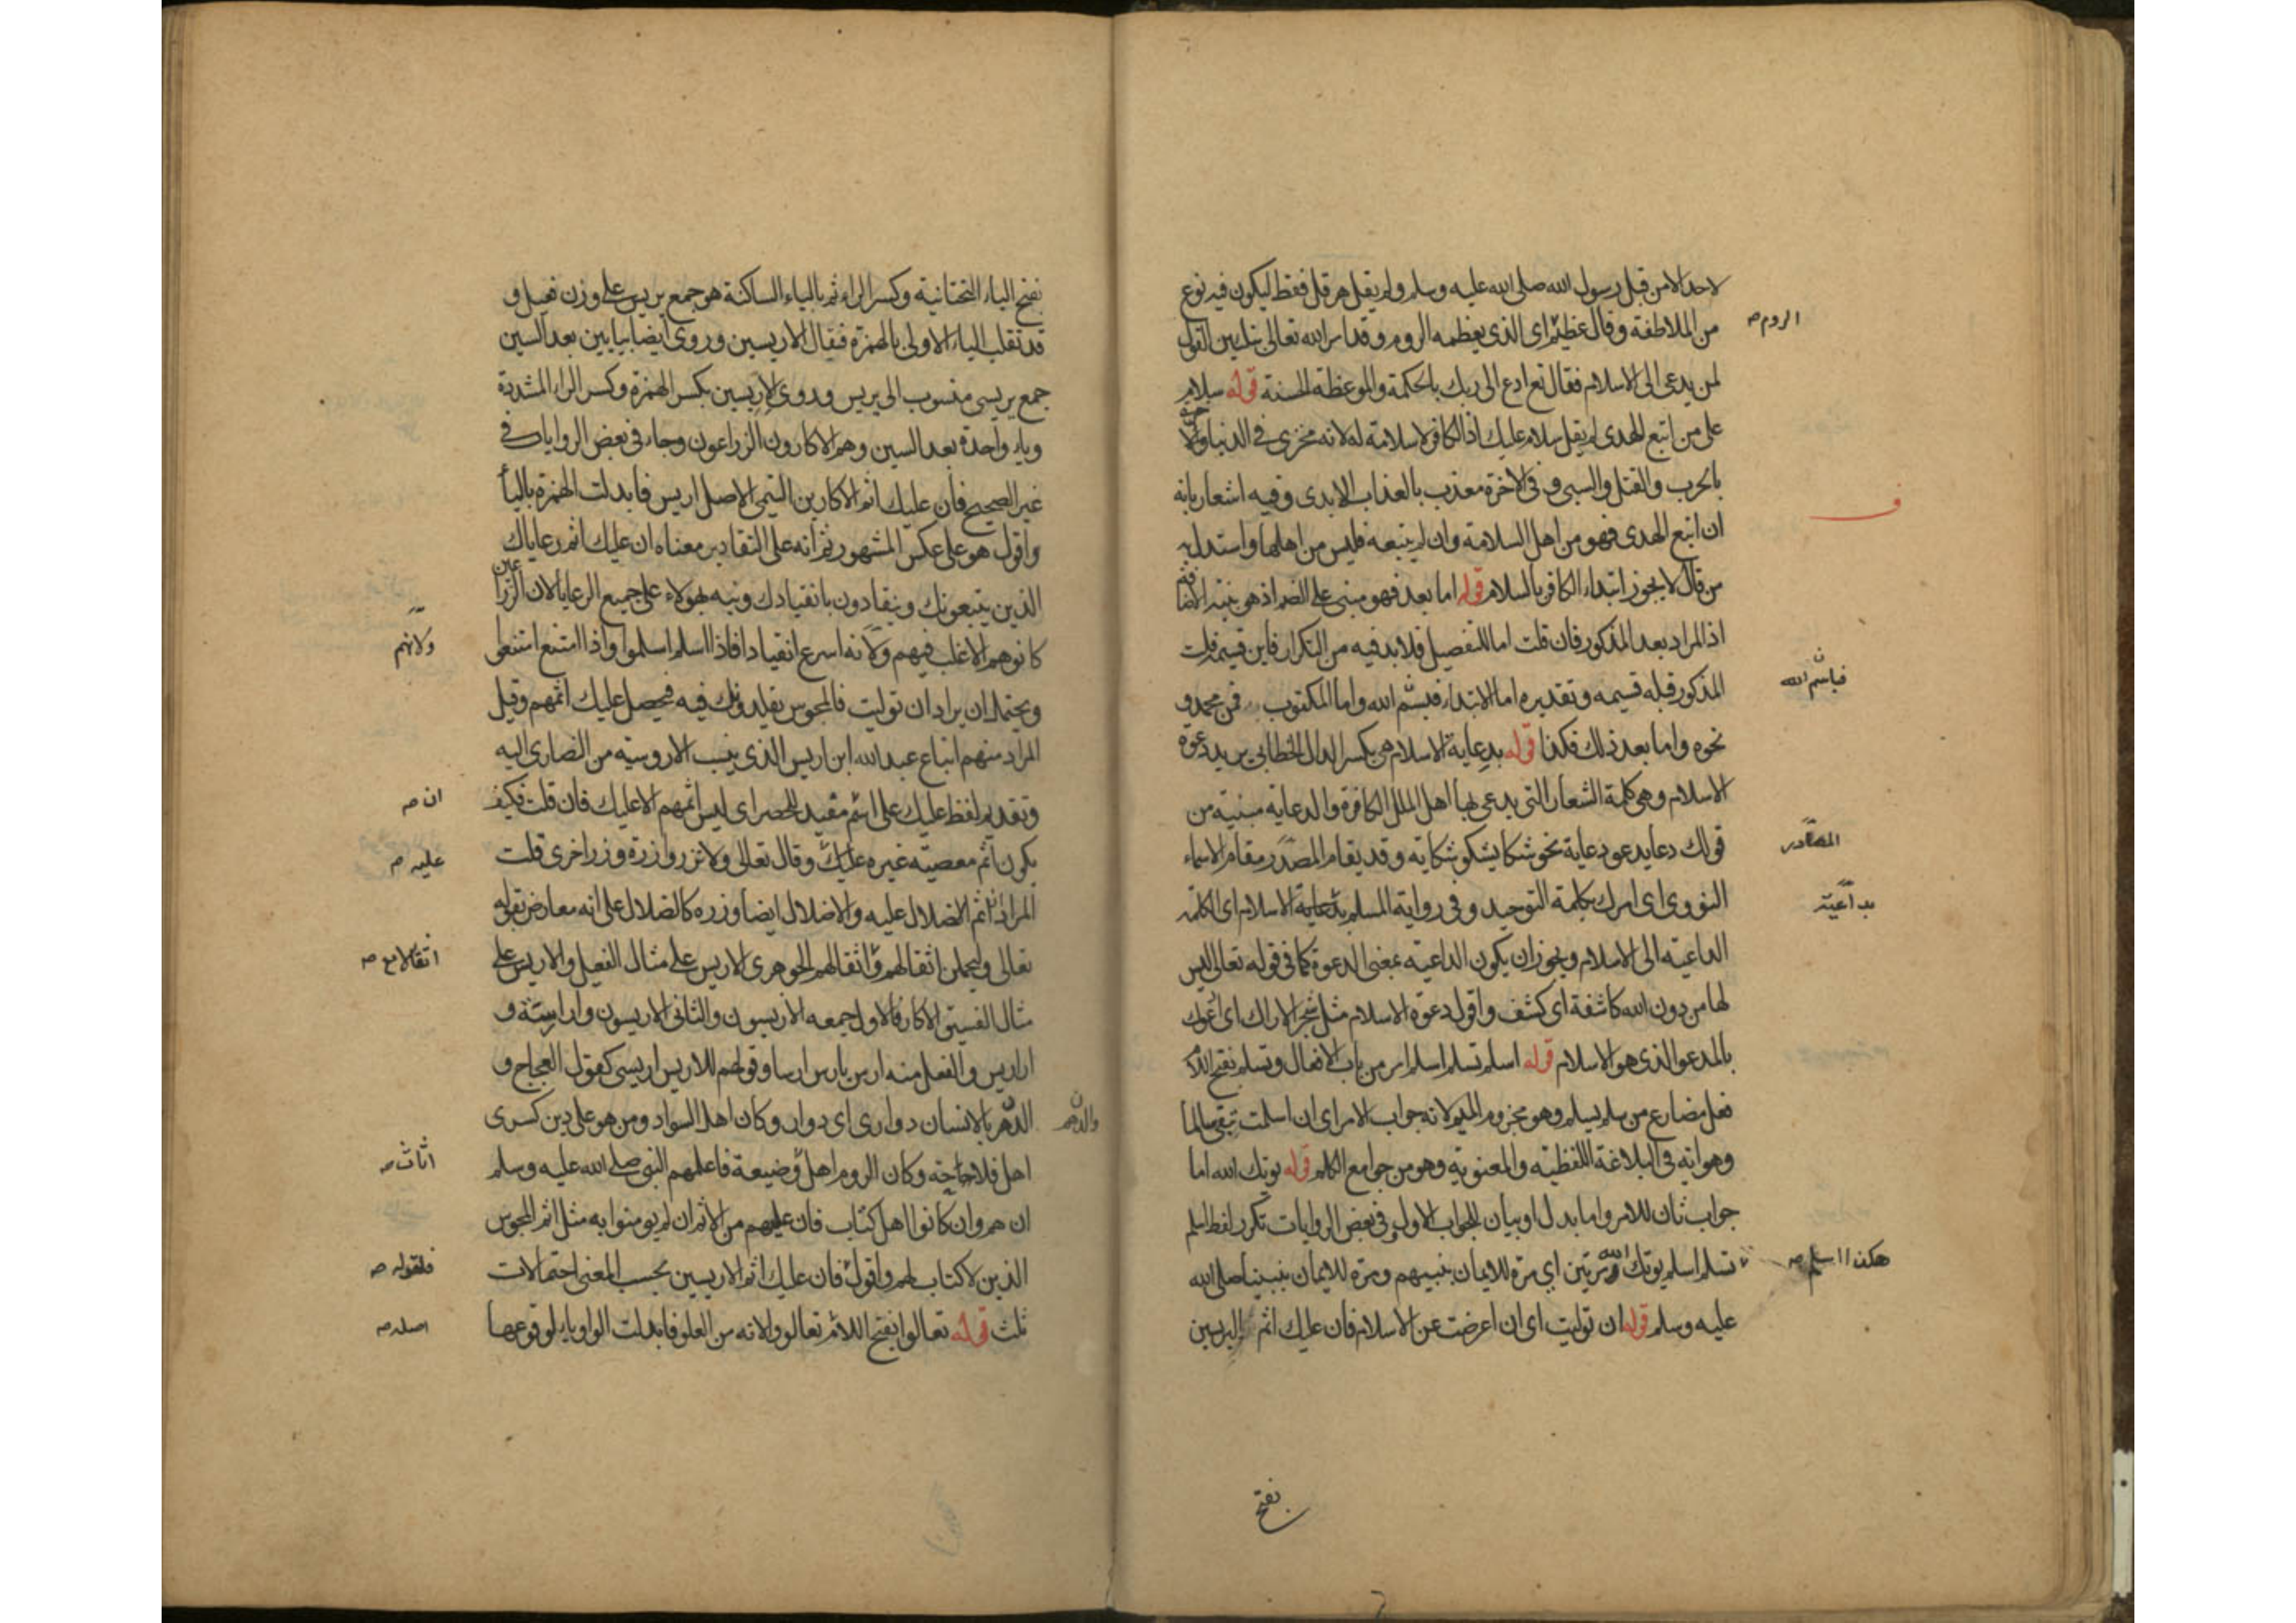 لاحد الا من قبل رسول الله صلى الله عليه وسلم ولم يقل هرقل فقط ليكون فيه نوع
من الملاطفة وقال عظيم اى الذى يعظمه الروم وقد امر الله تعالى بتليين القول
الروم صح
لمن يدعى الى الاسلام فقال تع ادع الى ربك بالحكمة والموعظة الحسنة قوله سلام
على من اتبع الهدى لم يقل سلام عليك اذ الكافر لا سلامة له لانه مخزى فى الدنيا
بالحرب والقتل والسبى و فى الاخرة معذب بالعذاب الابدى وفيه اشعار بانه
ف
ان اتبع الهدى فهو من اهل السلامة وان لم يتبعه فليس من اهلها واستدل به
من قال لا يجوز ابتداء الكافر بالسلام قوله اما بعد فهو مبنى على الضم اذ هو بنية الاضافة
اذ المراد بعد المذكور فان قلت اما للتفصيل فلا بد فيه من التكرار فاين قسيمه قلت
المذكور قبله قسيمه وتقديره اما الابتداء فبسم الله واما المكتوب فمن محمد و
فباسم الله
نحوه واما بعد ذلك فكذا قوله بدعاية الاسلام هى بكسر الدال الخطابى يريد دعوة
الاسلام وهى كلمة الشعار التى يدعى بها اهل الملل الكافرة والدعاية مبنية من
قولك دعا يدعو دعاية نحو شكا يشكو شكاية وقد يقام المصدر مقام الاسماء
المصادر
النووى اى امرك بكلمة التوحيد وفى رواية المسلم بدعاية الاسلام اى الكلمة
بداعية
الداعية الى الاسلام ويجوز ان يكون الداعية بمعنى الدعوة كما فى قوله تعالى ليس
لها من دون الله كاشفة اى كشف واقول دعوة الاسلام مثل شجر الاراك اى ادعوك
بالمدعو الذى هو الاسلام قوله اسلم تسلم اسلم امر من باب الافعال وتسلم بفتح اللام
فعل مضارع من سلم يسلم وهو مجزوم الميم لانه جواب الامر اى ان اسلمت تبقى سالما
وهو انه فى البلاغة اللفظية والمعنوية وهو من جوامع الكلم قوله يؤتك الله اما
جواب ثان للامر واما بدل او بيان للجواب الاول وفى بعض الروايات تكرر لفظ اسلم
تسلم اسلم يوتك الله مرتين اى مرة للايمان بنبيهم ومرة للايمان بنبينا صلى الله
هكذا اسلم صح
عليه وسلم قوله ان توليت اى ان اعرضت عن الاسلام فان عليك اثم اليريسين
بفتح
بفتح الياء التحتانية وكسر الراء ثم بالياء الساكنة هو جمع يريس على وزن فعيل و
قد تقلب الياء الاولى بالهمزة فيقال الاريسين وروى ايضا بيايين بعد السين
جمع يريسى منسوب الى يريس وروى الاريسين بكسر الهمزة وكسر الراء المشددة
وياء واحدة بعد السين وهم الاكارون الزراعون وجاء فى بعض الروايات فى
غير الصحيح فان عليك اثم الاكارين التيمى الاصل اريس فابدلت الهمزة بالياء
واقول هو على عكس المشهور ثم انه على التقادير معناه ان عليك اثم رعاياك
الذين يتبعونك وينقادون بانقيادك ونبه بهولاء على جميع الرعايا لان الزراعين
كانوا هم الاغلب فيهم ولانه اسرع انقيادا فاذا اسلم اسلموا واذا امتنع امتنعوا
ولانهم
ويحتمل ان يراد ان توليت فالمجوس تقلدونك فيه فيحصل عليك اثمهم وقيل
المراد منهم اتباع عبد الله ابن اريس الذى ينسب الاروسية من النصارى اليه
وتقديم لفظ عليك على اسم مفيد للحصر اى ليس اثمهم الا عليك فان قلت فكيف
ان صح
يكون اثم معصية غيره عليك وقال تعالى ولا تزر وازرة وزر اخرى قلت
عليه صح
المراد ان اثم الاضلال عليه والاضلال ايضا وزره كالضلال على انه معارض بقوله
تعالى وليحملن اثقالهم واثقالهم الجوهرى الاريس على مثال الفعيل والاريس على
اثقالا مع صح
مثال الفسيق الاكار فالاول جمعه الاريسون والثانى الاريسون وارارسة و
اراريس والفعل منه ارس يارس ارسا وقولهم للاريس اريسى كقول العجاج و
الدهر بالانسان دوارى اى دوار وكان اهل السواد ومن هو على دين كسرى
والدهر
اهل فلاحة وكان الروم اهل وضيعة فاعلمهم النبى صلى الله عليه وسلم
اثاث صح
ان هم وان كانوا اهل كتاب فان عليهم من الاثم ان لم يومنوا به مثل اثم المجوس
الذين لا كتاب لهم واقول فان عليك اثم الاريسين بحسب المعنى احتمالات
فلقوله صح
ثلث قوله تعالوا بفتح اللام تعالووا لانه من العلو فابدلت الواو ياء لوقوعها
اصله صح